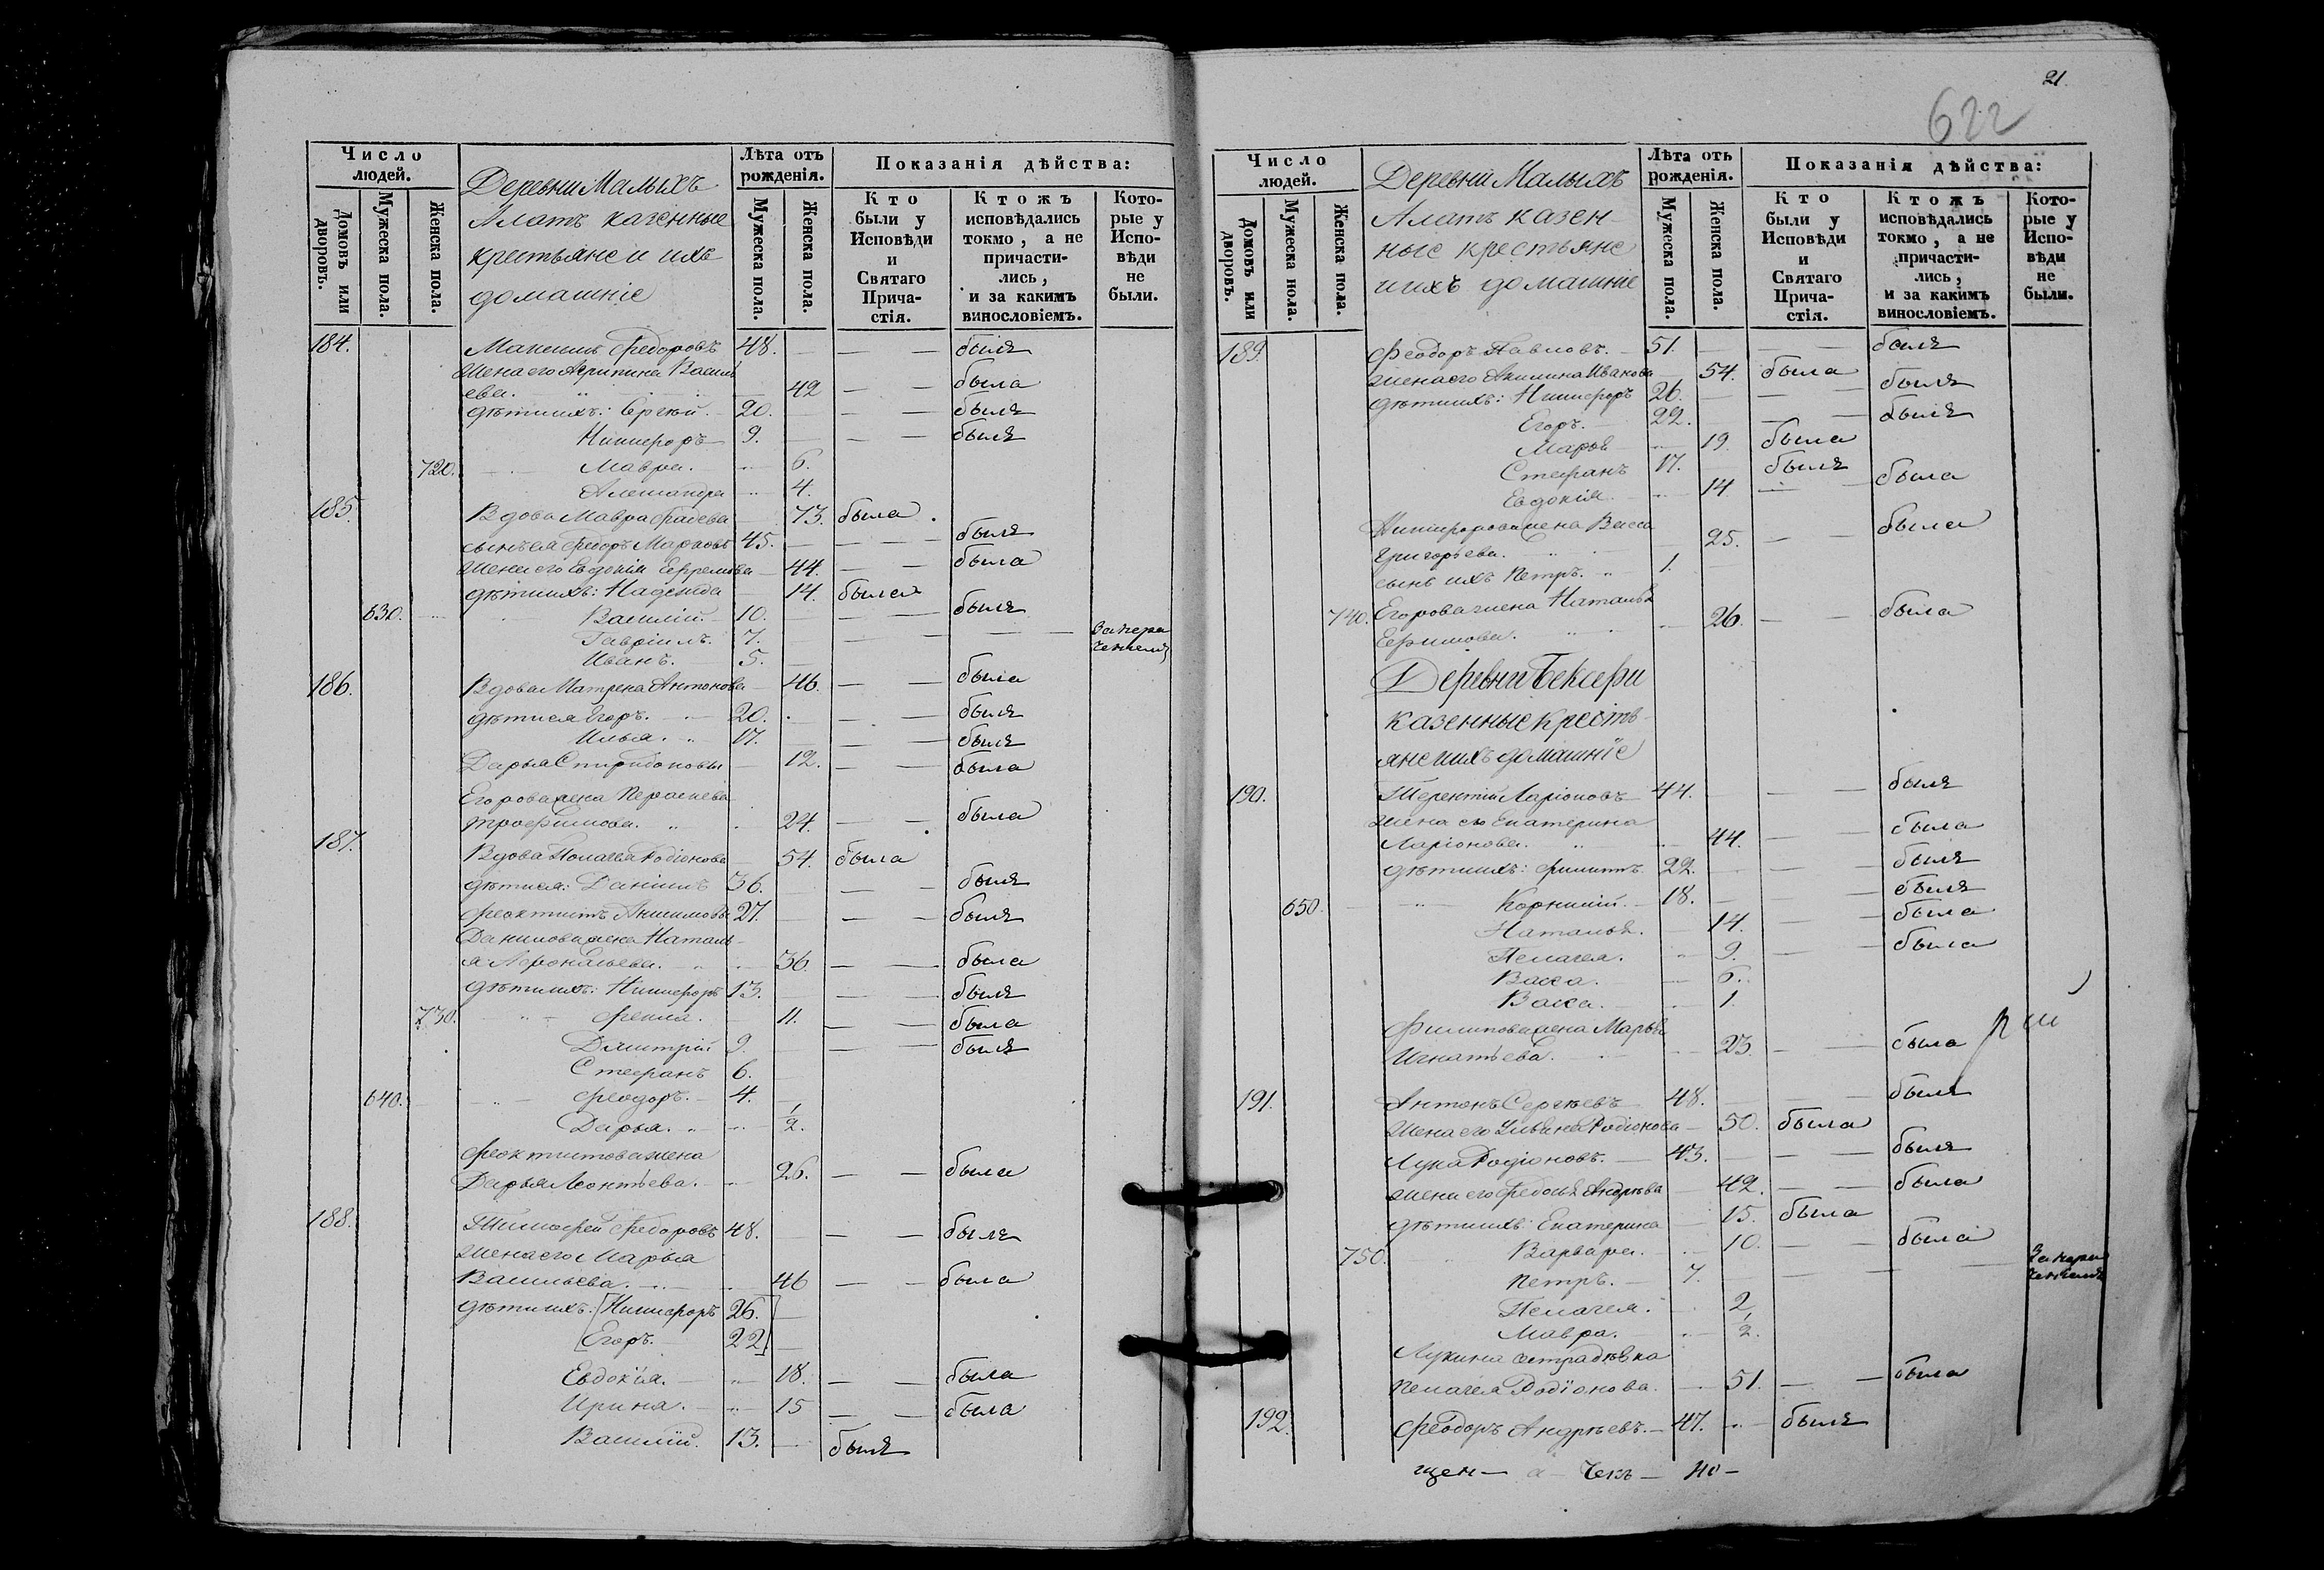 Число людей.
Домовъ или дворовъ.
Мужеска пола.
Женска пола.
Деревни Малыхъ
Алатъ казенные
крестьяне и ихъ
домашніе
Лѣта отъ рожденія.
Мужеска пола.
Женска пола.
Показанія дѣйства:
Кто были у Исповѣди и Святаго Причастія.
Ктожъ исповѣдались токмо, а не причастились, и за какимъ винословіемъ.
Которые у Исповѣди не были.
184. Максимъ Ѳедоровъ 48. — — былъ
Жена его Агрипина Василь
ева. 42 — — была
дѣти ихъ: Сергѣй. 20. — — былъ
Никифоръ 9. — — былъ
720. Мавра. 6.
Александра 4.
185. Вдова Мавра Фадеева 73. была.
сынъ ея Ѳедоръ Марковъ 45. — — былъ
Жена его Евдокія Ефремова 44. — — была
дѣти ихъ: Надежда 14. была
630. Василій. 10. — — былъ
Гавріилъ. 7. — — За пера
Иванъ. 5. — чениемъ
186. Вдова Матрена Антонова 46. — — была
дѣти ея Егоръ. 20. — — былъ
Илья. 17. — — былъ
Дарья Спиридонова 12. — — была
Егорова жена
Трофимова. 24. — — была
187. Вдова Пелагея Родіонова 54. была
дѣти ея: Даніилъ 36. — — былъ
Феоктистъ Анисимовы 27. — — былъ
Данилова жена Наталь-
я Афонасьева. 36. — — была
дѣти ихъ: Никифоръ 13. — — былъ
730. Фекла. 11. — — была
Димитрій 9. — — былъ
Стефанъ 6.
640. Ѳеодоръ. 4.
Дарья. 1/2.
Феоктистова жена
Дарья Леонтьева. 26. — — была
188. Тимофей Ѳедоровъ 48. — — былъ
Жена его Марья
Васильева. 46 — — была
дѣти ихъ: [Никифоръ 26.
[Егоръ. 22]
Евдокія. 18. — — была
Ирина. 15 — — была
Василій. 13. — былъ
21.
622
Число людей.
Домовъ или дворовъ.
Мужеска пола.
Женска пола.
Деревни Малыхъ
Алатъ казен-
ные крестьяне
и ихъ домашніе
Лѣта отъ рожденія.
Мужеска пола.
Женска пола.
Показанія дѣйства:
Кто были у Исповѣди и Святаго Причастія.
Ктожъ исповѣдались токмо, а не причастились, и за какимъ винословіемъ.
Которые у Исповѣди не были.
189. Ѳеодоръ Павловъ. 51. — — былъ
Жена его Акилина Иванова 54. была
дѣти ихъ: Никифоръ 26. — — былъ
Егоръ. 22. — — былъ
Марья 19. была
Стефанъ 17. былъ
Евдокія. 14 — была
Никифорова жена Васса
Григорьева. 25. — — была
сынъ ихъ Петръ. 1.
740. Егорова жена Наталья
Ефимова. 26. — — была
Деревни Бексери
казенные кресть-
яне и ихъ домашніе
190. Терентій Ларіоновъ 44. — — былъ
Жена его Екатерина
Ларіонова. 44. — — была
дѣти ихъ: Филиппъ 22. — — былъ
650. Корнилій. 18. — былъ
Наталья. 14. — — была
Пелагея. 9. — — была
Васса. 6.
Васса. 1.
Филиппова жена Марья
Игнатьева. 23. — — была
191. Антонъ Сергѣевъ 48. — — былъ
Жена его Ульяна Родіонова 50. была
Лука Родіоновъ. 43. — — былъ
Жена его Ѳедосья Андрѣева 42. — — была
дѣти ихъ: Екатерина 15. была
750. Варвара. 10. — — была
Петръ. 7. — — За пера
чениемъ
Пелагея. 2
Мавра. 1/2.
Лукина сестра дѣвка
Пелагея Родіонова. 51. — — была
192. Ѳеодоръ Андрѣевъ. 47. былъ